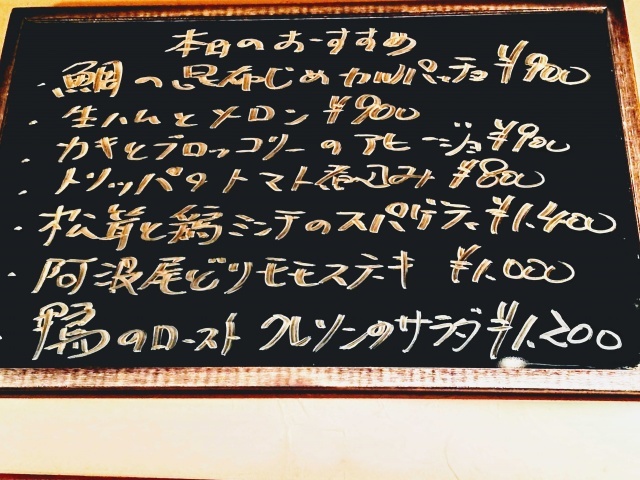 本日のおすすめ
・鯛の昆布じめカルパッチョ ¥900
・生ハムとメロン ¥900
・カキとブロッコリーのアヒージョ ¥900
・トリッパのトマト煮込み ¥800
・松茸と鶏ミンチのスパゲティ ¥1.400
・阿波尾どりモモステーキ ¥1.000
・鴨のロースト クレソンのサラダ ¥1.200